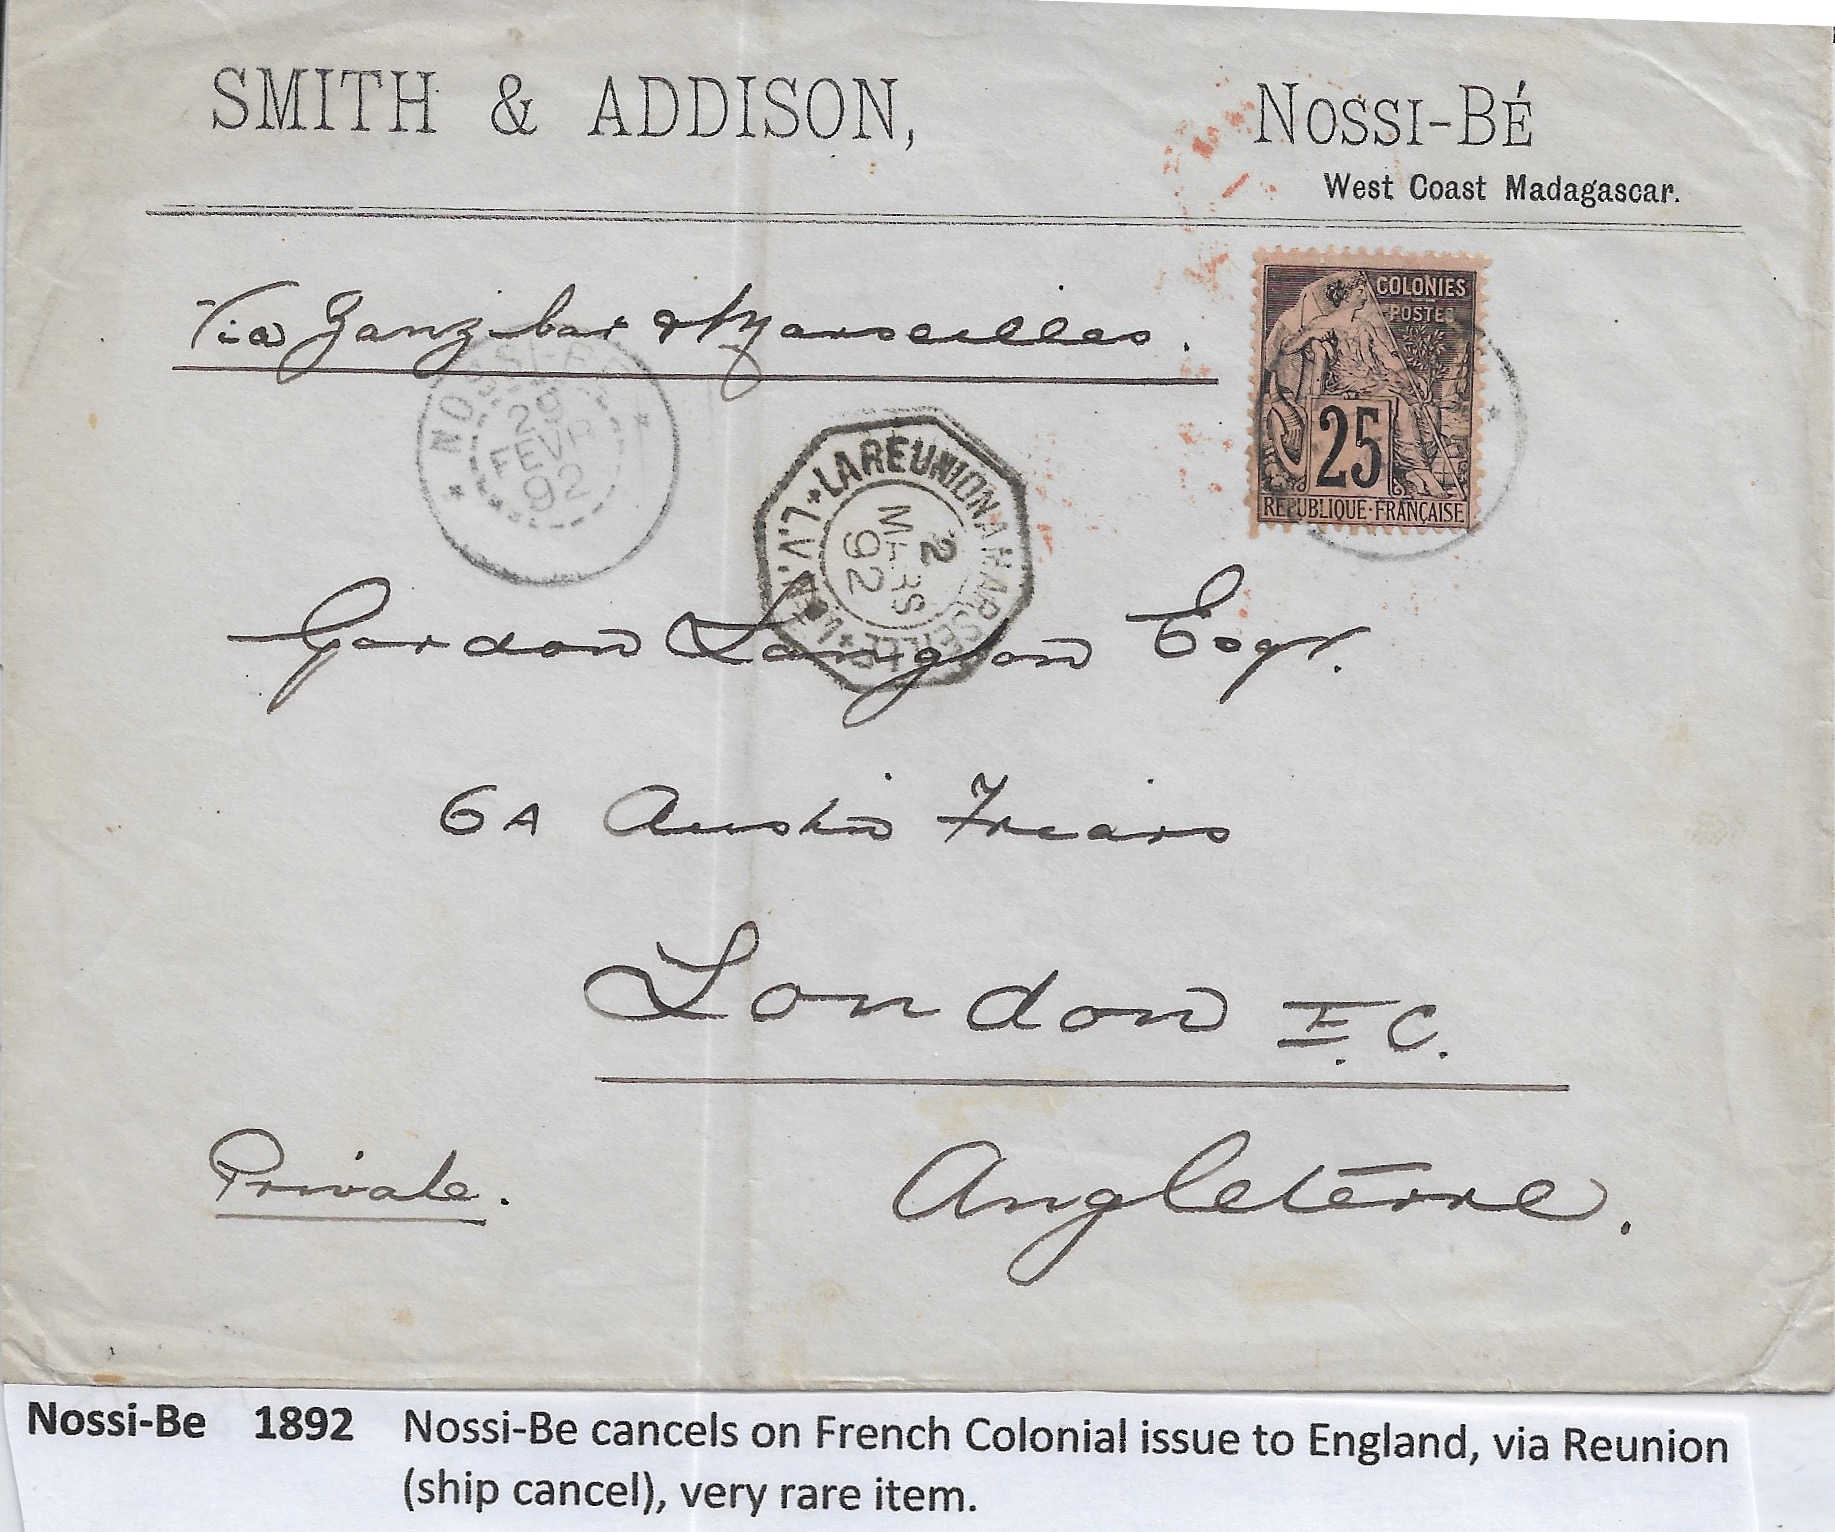 SMITH & ADDISON, NOSSI-BÉ
West Coast Madagascar.
Via Zanzibar & Marseilles.
COLONIES
POSTES
25
REPUBLIQUE·FRANÇAISE
NOSSI-BÉ
29
FEVR
92
LA REUNION A MARSEILLE
L.V.
2
MARS
92
Gordon Langton Esqr.
6A Austin Friars
London E.C.
Private. Angleterre.
Nossi-Be 1892 Nossi-Be cancels on French Colonial issue to England, via Reunion
(ship cancel), very rare item.